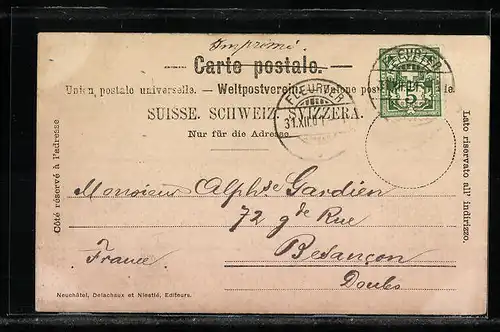 Imprimé
Carte postale.
Union postale universelle. — Weltpostverein. — Unione postale
SUISSE. SCHWEIZ. SVIZZERA.
Nur für die Adresse.
FLEURIER
31.XII.01
FLEURIER
5
Côté réservé à l'adresse
Lato riservato all' indirizzo.
Monsieur Alphse Gardien
72 gde Rue
Besançon
France.
Doubs
Neuchâtel, Delachaux et Niestlé, Editeurs.